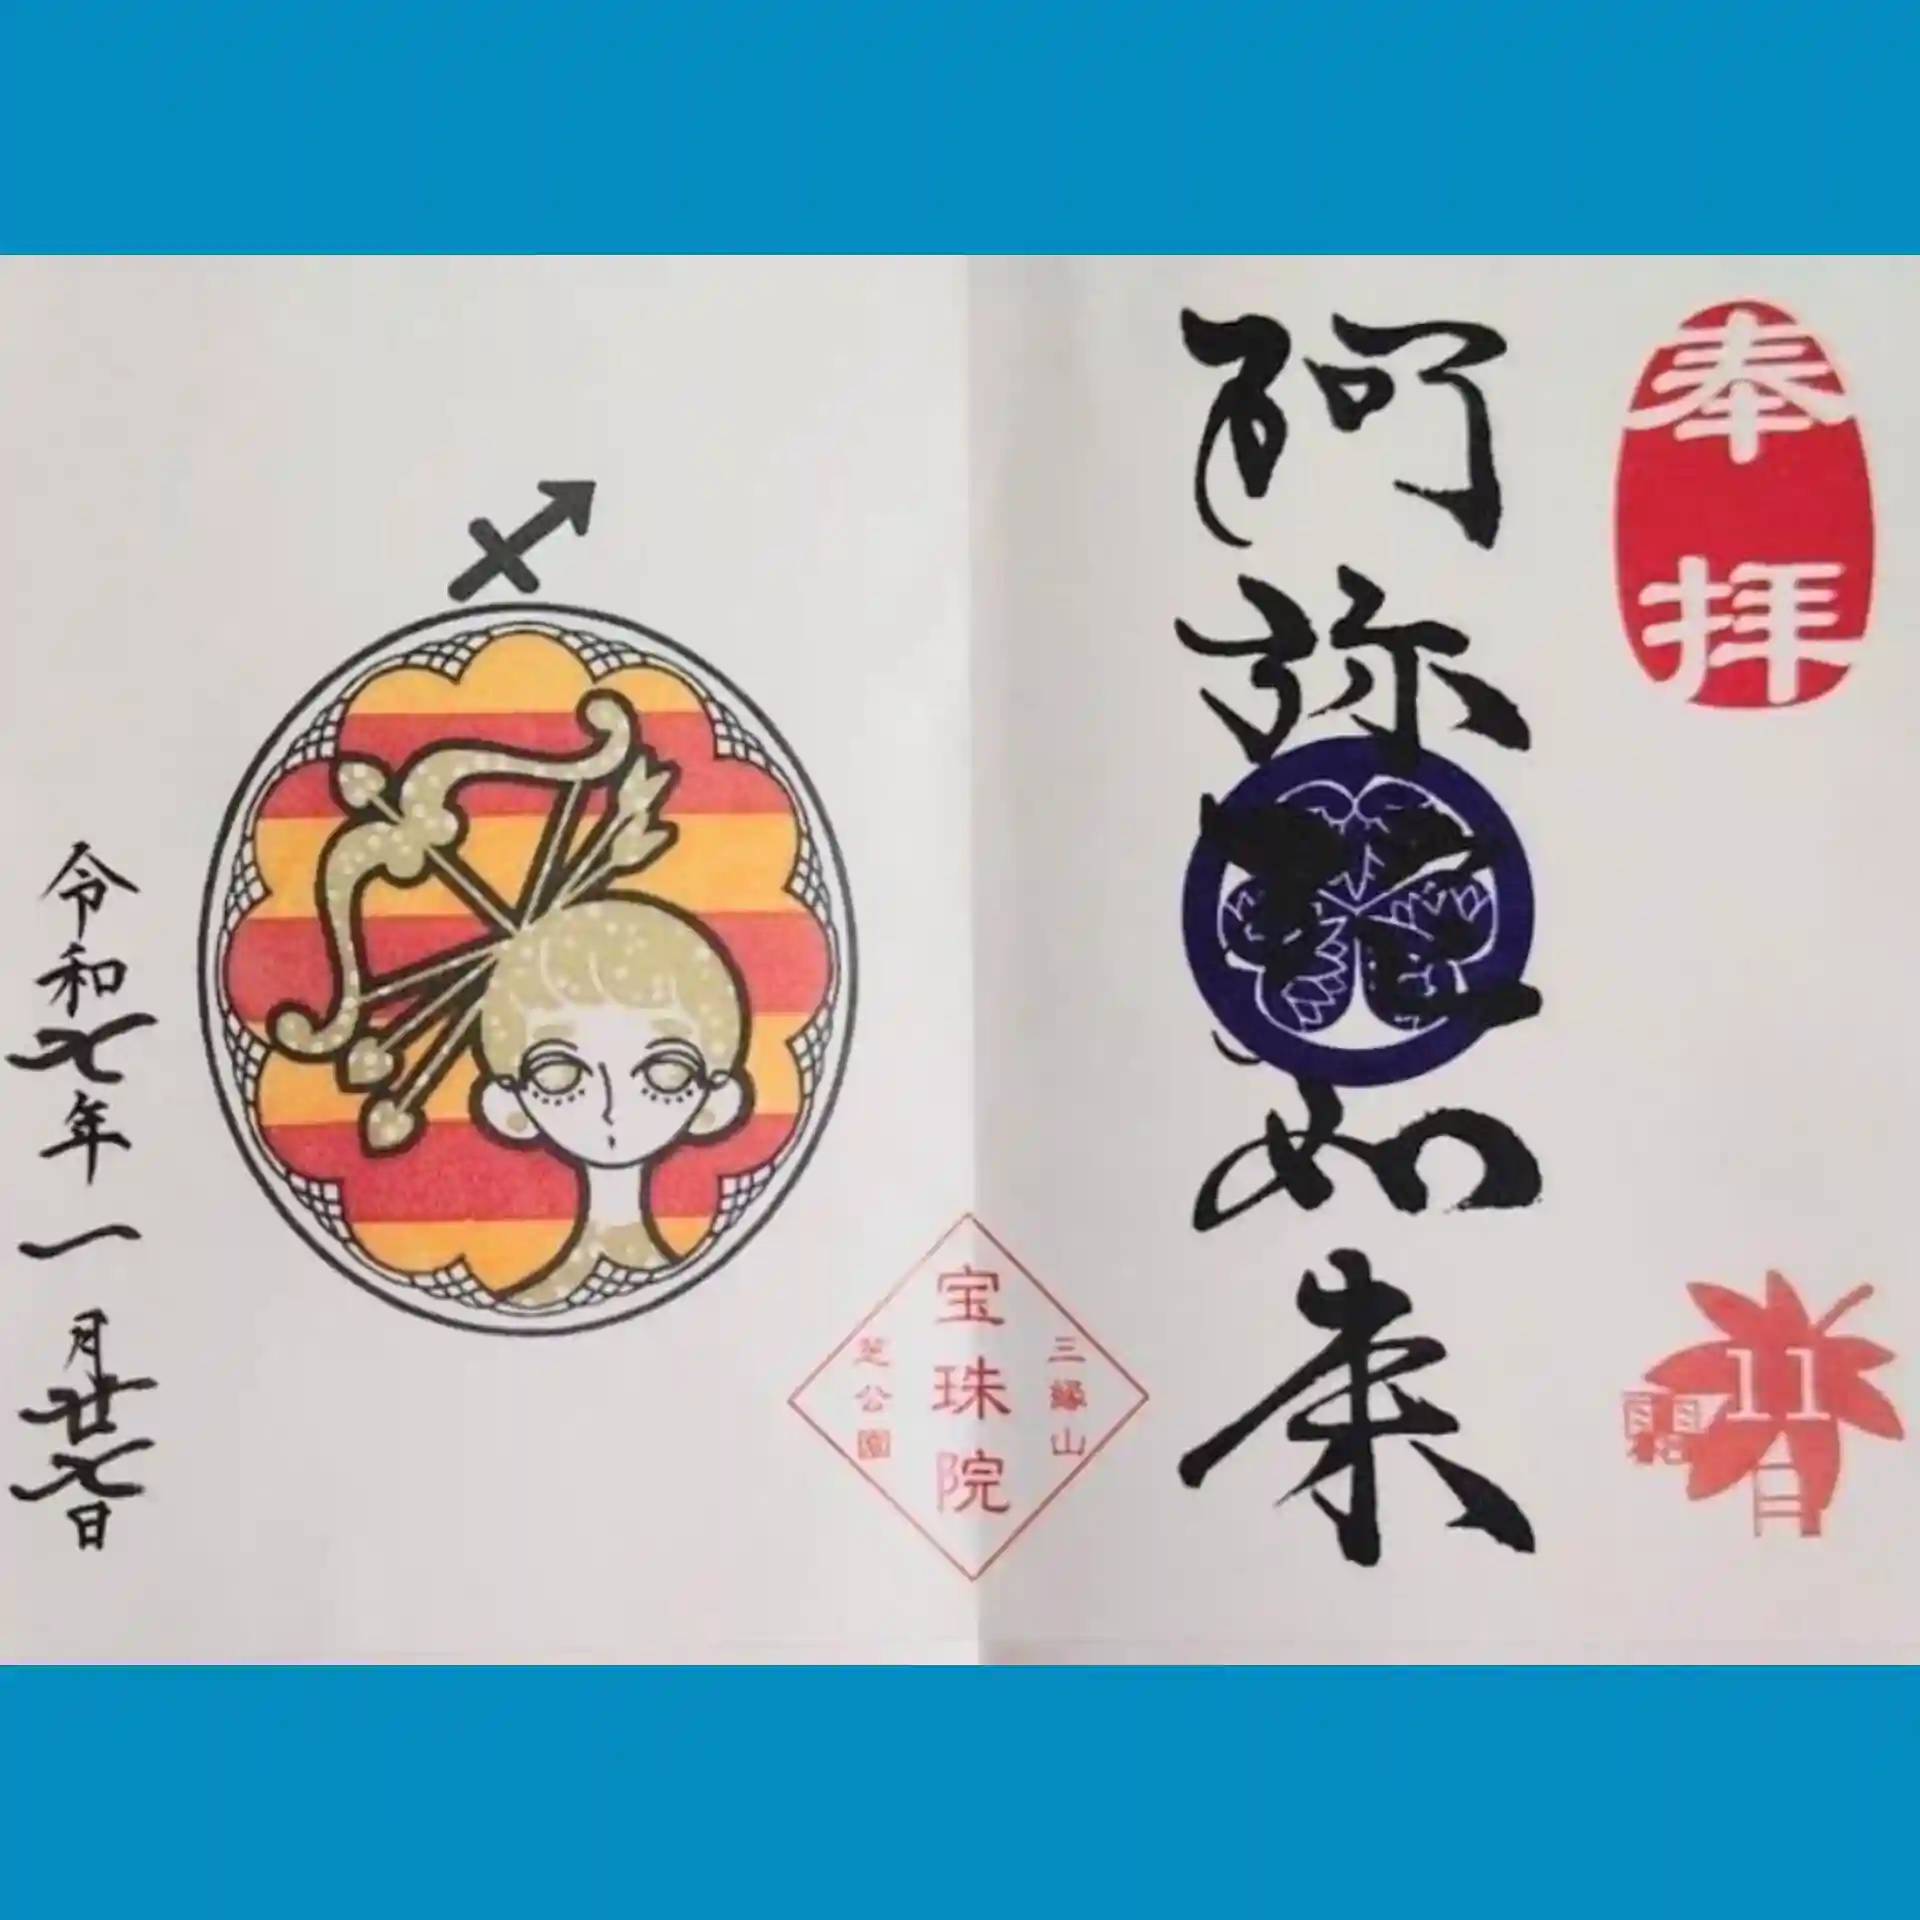 奉拝
11
日
阿弥陀如来
三縁山
宝珠院
芝公園
令和七年一月廿七日